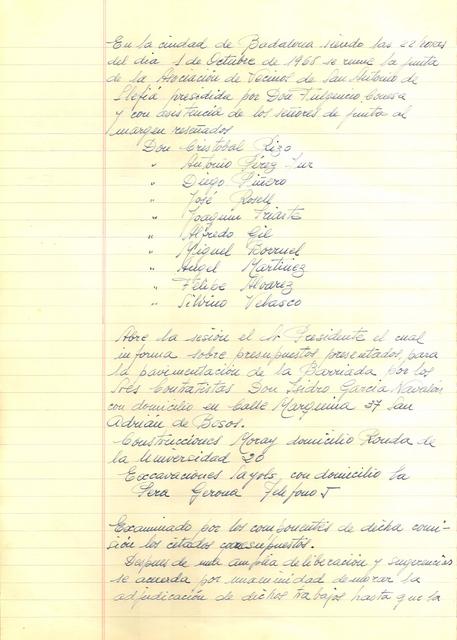 En la ciudad de Badalona siendo las 22 horas
del dia 1 de Octubre de 1965 se reune la junta
de la Asociación de Vecinos de San Antonio de
Llefiá presidida por Don Fulgencio Conesa
y con asistencia de los señores de junta al
margen reseñados
Don Cristobal Rizo
" Antonio Pérez Sur
" Diego Piñero
" José Rosell
" Joaquin Iriarte
" Alfredo Gil
" Miguel Borruel
" Angel Martinez
" Felipe Alvarez
" Silvino Velasco
Abre la sesión el Sr Presidente el cual
informa sobre presupuestos presentados para
la pavimentación de la Barriada por los
trés Contratistas Don Isidro Garcia Navalón
con domicilio en Calle Marquina 37 San
Adrián de Besos.
Construcciones Moray domicilio Ronda de
la Universidad 20
Excavaciones Sayols, con domicilio La
Pera Gerona Telefono 5
Examinado por los componentes de dicha comi-
sión los citados presupuestos.
Despues de una amplia deliberación y sugerencias
se acuerda por unanimidad demorar la
adjudicación de dichos trabajos hasta que la